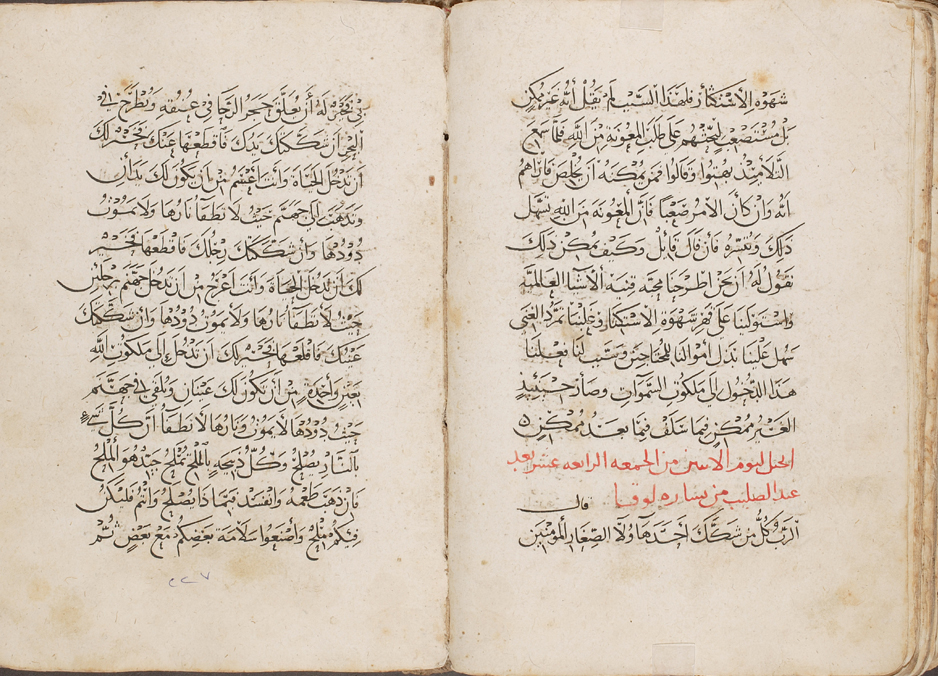 شهوه الاستكثار فلهذا السبب لم يقل انه غير ممكن
بل مستصعب ليحثهم على طلب المعونة من الله فلما سمع
التلاميذ بهتوا وقالوا فمن يمكنه ان يخلص فاراهم
انه وان كان الامر صعبا فان المعونه من الله تسهل
ذلك وتيسره فان قال قائل وكيف يمكن ذلك
نقول له ان نحن اطرحنا محبة قنية الاشيا العالمية
واستولينا على قهر شهوة الاستكثار وغلبنا تمرد الغنى
سهل علينا بذل اموالنا للمحتاجين وسبب لنا فعلنا
هذا الدخول الى ملكوت السموات وصار حينيذ
الغير ممكن فيما سلف فيما بعد ممكن
انجيل ليوم الاثنين من الجمعه الرابعه عشر بعد
عيد الصليب من بشاره لوقا
قال
الرب كل من شكك احد هاولا الصغار المومنين
بي فخير له ان يعلق حجر الرحا في عنقه ويطرح في
البحر ان شككتك يدك فاقطعها عنك فخير لك
ان تدخل الحياة وانت اعسم من ان يكون لك يدان
وتذهب الى جهنم حيث لا تطفا نارها ولا يموت
دودها وان شككتك رجلك فاقطعها فخير
لك ان تدخل الحياة وانت اعرج من ان تدخل جهنم برجلين
حيث لا تطفا نارها ولا يموت دودها وان شككتك
عينك فاقلعها فخير لك ان تدخل الى ملكوت الله
بعين واحدة من ان تكون لك عينان وتلقى في جهنم
حيث دودها لا يموت ونارها لا تطفا ان كل شي
بالنار يصلح وكل ذبيحه بالملح تملح جيد هو الملح
فان ذهب طعمه وانفسد فبماذا يصلح وانتم فليكن
فيكم ملح واصنعوا سلامة بعضكم مع بعض ثم
٢٢٧